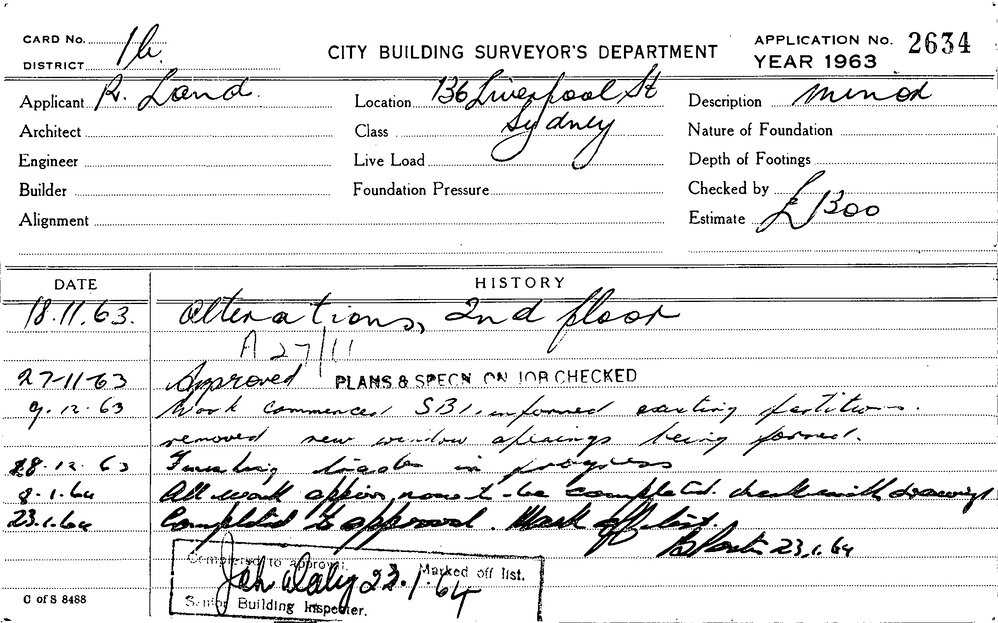 CARD No. 16.
DISTRICT
CITY BUILDING SURVEYOR'S DEPARTMENT
APPLICATION No. 2634
YEAR 1963
Applicant R. Land.
Location 136 Liverpool St
Sydney
Description minor
Architect
Class
Nature of Foundation
Engineer
Live Load
Depth of Footings
Builder
Foundation Pressure
Checked by
Alignment
Estimate £1300
DATE HISTORY
18.11.63. Alterations, 2nd floor
A 27/11
27-11-63 Approved PLANS & SPECN ON JOB CHECKED
9.12.63 Work commenced SBI. informed existing partitions.
removed new window openings being formed.
18.12.63 Finishing trades in progress
8.1.64 All work appears now to be completed. check with drawings
23.1.64 Completed to approval. Mark off list.
23.1.64
Completed to approval. Marked off list.
23.1.64
Senior Building Inspector.
C of S 8488